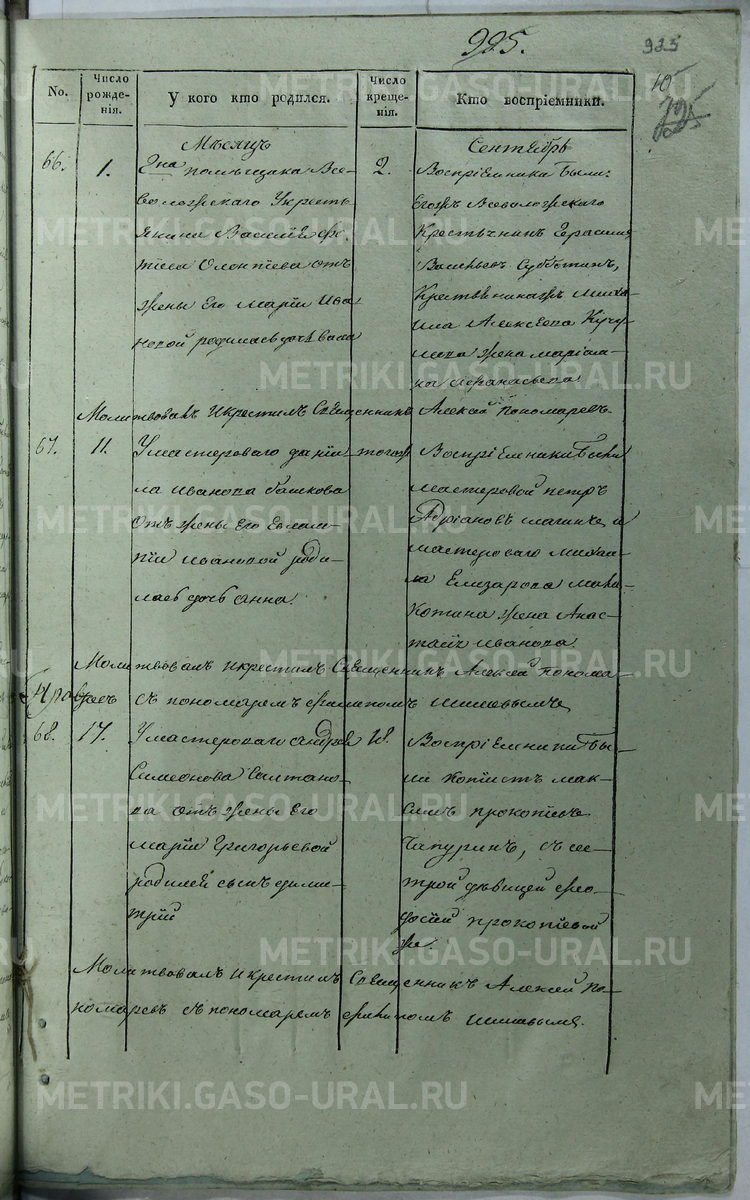 925.
925
No.
Число рожденія.
У кого кто родился.
Число крещенія.
Кто воспріемники.
Мѣсяцъ
Сентябрь
66.
1.
Гна помѣщика Все-
воложскаго Укресть
янина Василія
Олентіева отъ
жены Его Маріи Ива
новой родилась дочь
2.
Воспріемники Были:
Егожъ Всеволожскаго
Крестьянинъ Герасимъ
Васильевъ Субботинъ,
миха
ила Алексѣева
жена маріа
Афанасьева
Молитвовалъ Икрестилъ Священникъ Алексѣй пономаревъ
67.
11.
Умастероваго дании
ла иванова башкова
отъ жены Его Евлам-
піи ивановой роди-
лась дочь анна.
тогожъ
Воспріемники Были
мастеровой петръ
Адріановъ и
мастероваго михаи-
ла Елизарова
жена Анас-
тасія иванова
Молитвовалъ икрестилъ Священникъ Алексѣй понома
ревъ съ пономаремъ филипомъ
68.
17.
Умастероваго андрея
Симеонова Салтано-
ва отъ жены Его
маріи Григорьевой
родился сынъ дими-
трій
18.
Воспріемники Бы-
ли копіистъ мак-
симъ прокопіевъ
Чапуринъ, съ сес-
трой дѣвицей фео-
досіей прокопіевой
же.
Молитвовалъ икрестилъ Священникъ Алексѣй по-
номаревъ съ пономаремъ филипомъ
METRIKI.GASO-URAL.RU